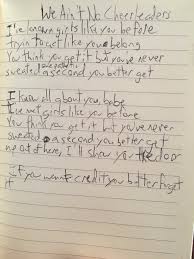 We Ain't No Cheerleaders
I've known girls like you before
tryin to act like you belong
You think you get it but you've never
sweated a second you better get
I know all about you, babe
I've met girls like you before
You think you get it but you've never
sweated a second you better get
out of here, I'll show you the door
If you want credit you better forget
it